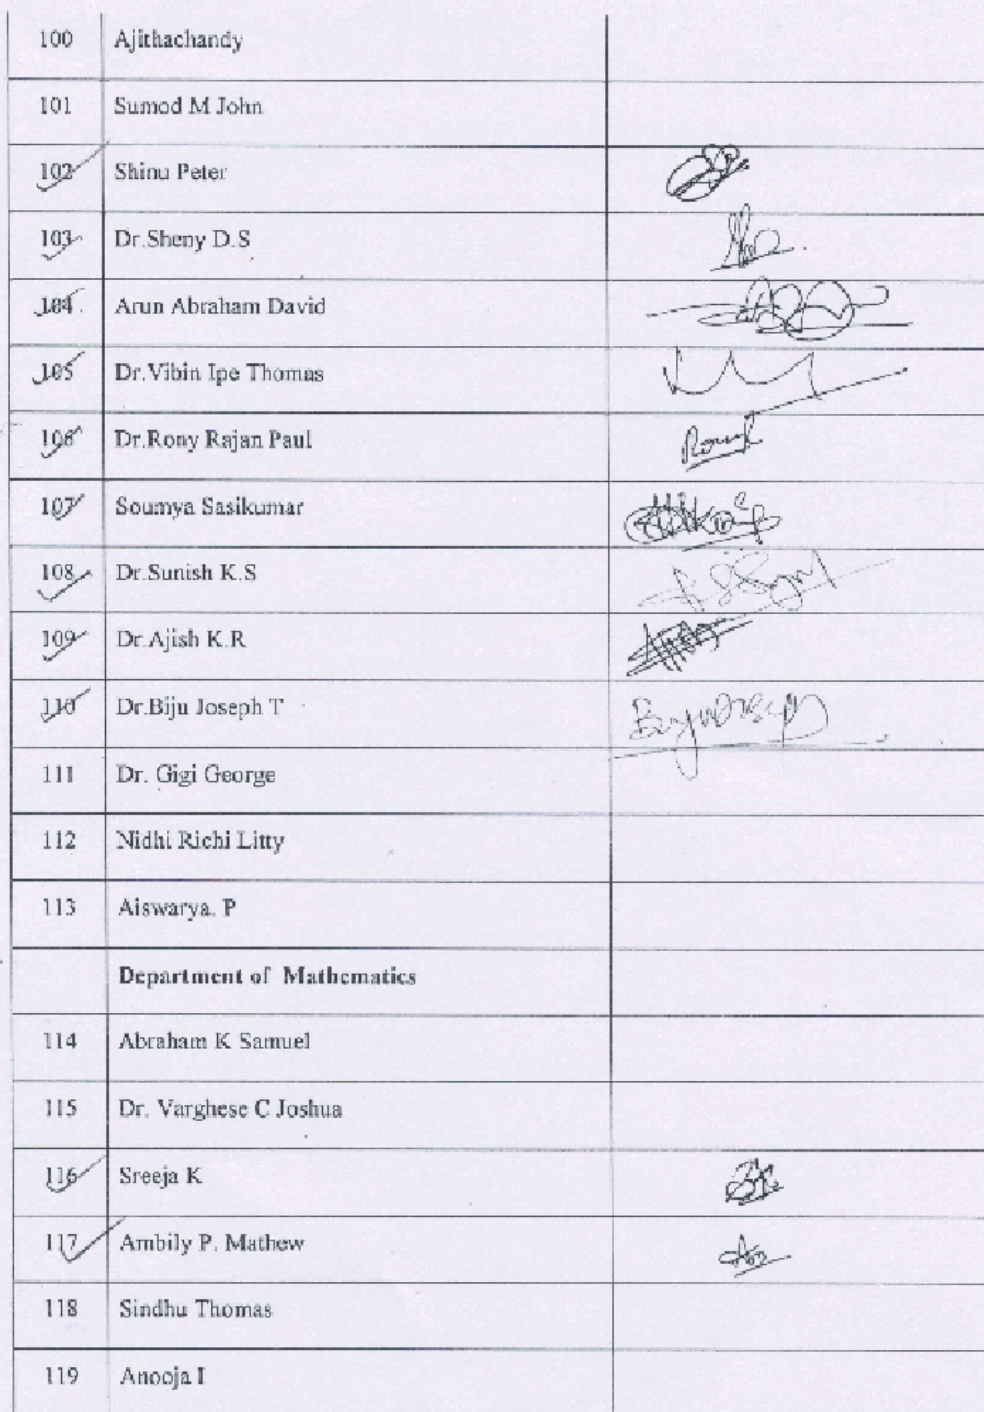 100 Ajithachandy
101 Sumod M John
102 Shinu Peter
103 Dr.Sheny D.S
104 Arun Abraham David
105 Dr.Vibin Ipe Thomas
106 Dr.Rony Rajan Paul
107 Soumya Sasikumar
108 Dr.Sunish K.S
109 Dr.Ajish K.R
110 Dr.Biju Joseph T
111 Dr. Gigi George
112 Nidhi Richi Litty
113 Aiswarya. P
Department of Mathematics
114 Abraham K Samuel
115 Dr. Varghese C Joshua
116 Sreeja K
117 Ambily P. Mathew
118 Sindhu Thomas
119 Anooja I